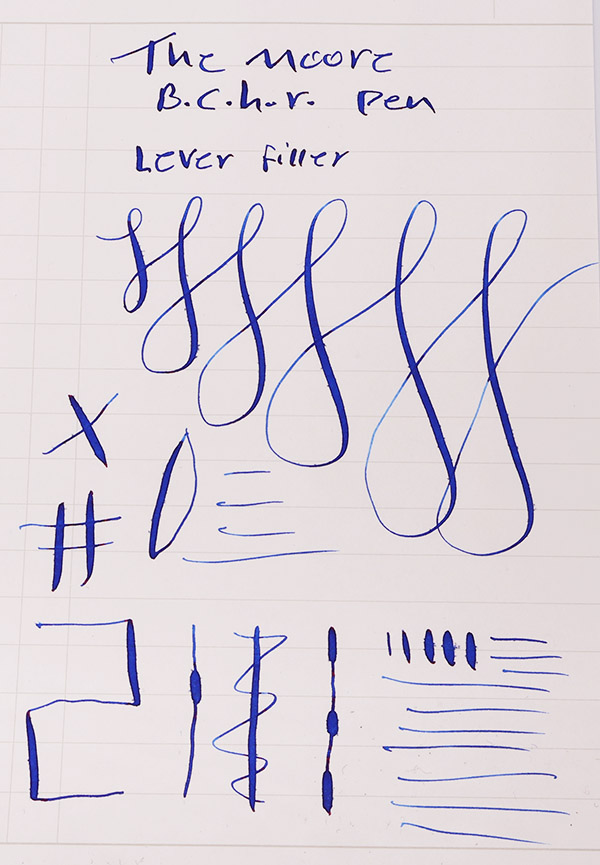 The Moore
B.C.h.r. Pen
Lever filler